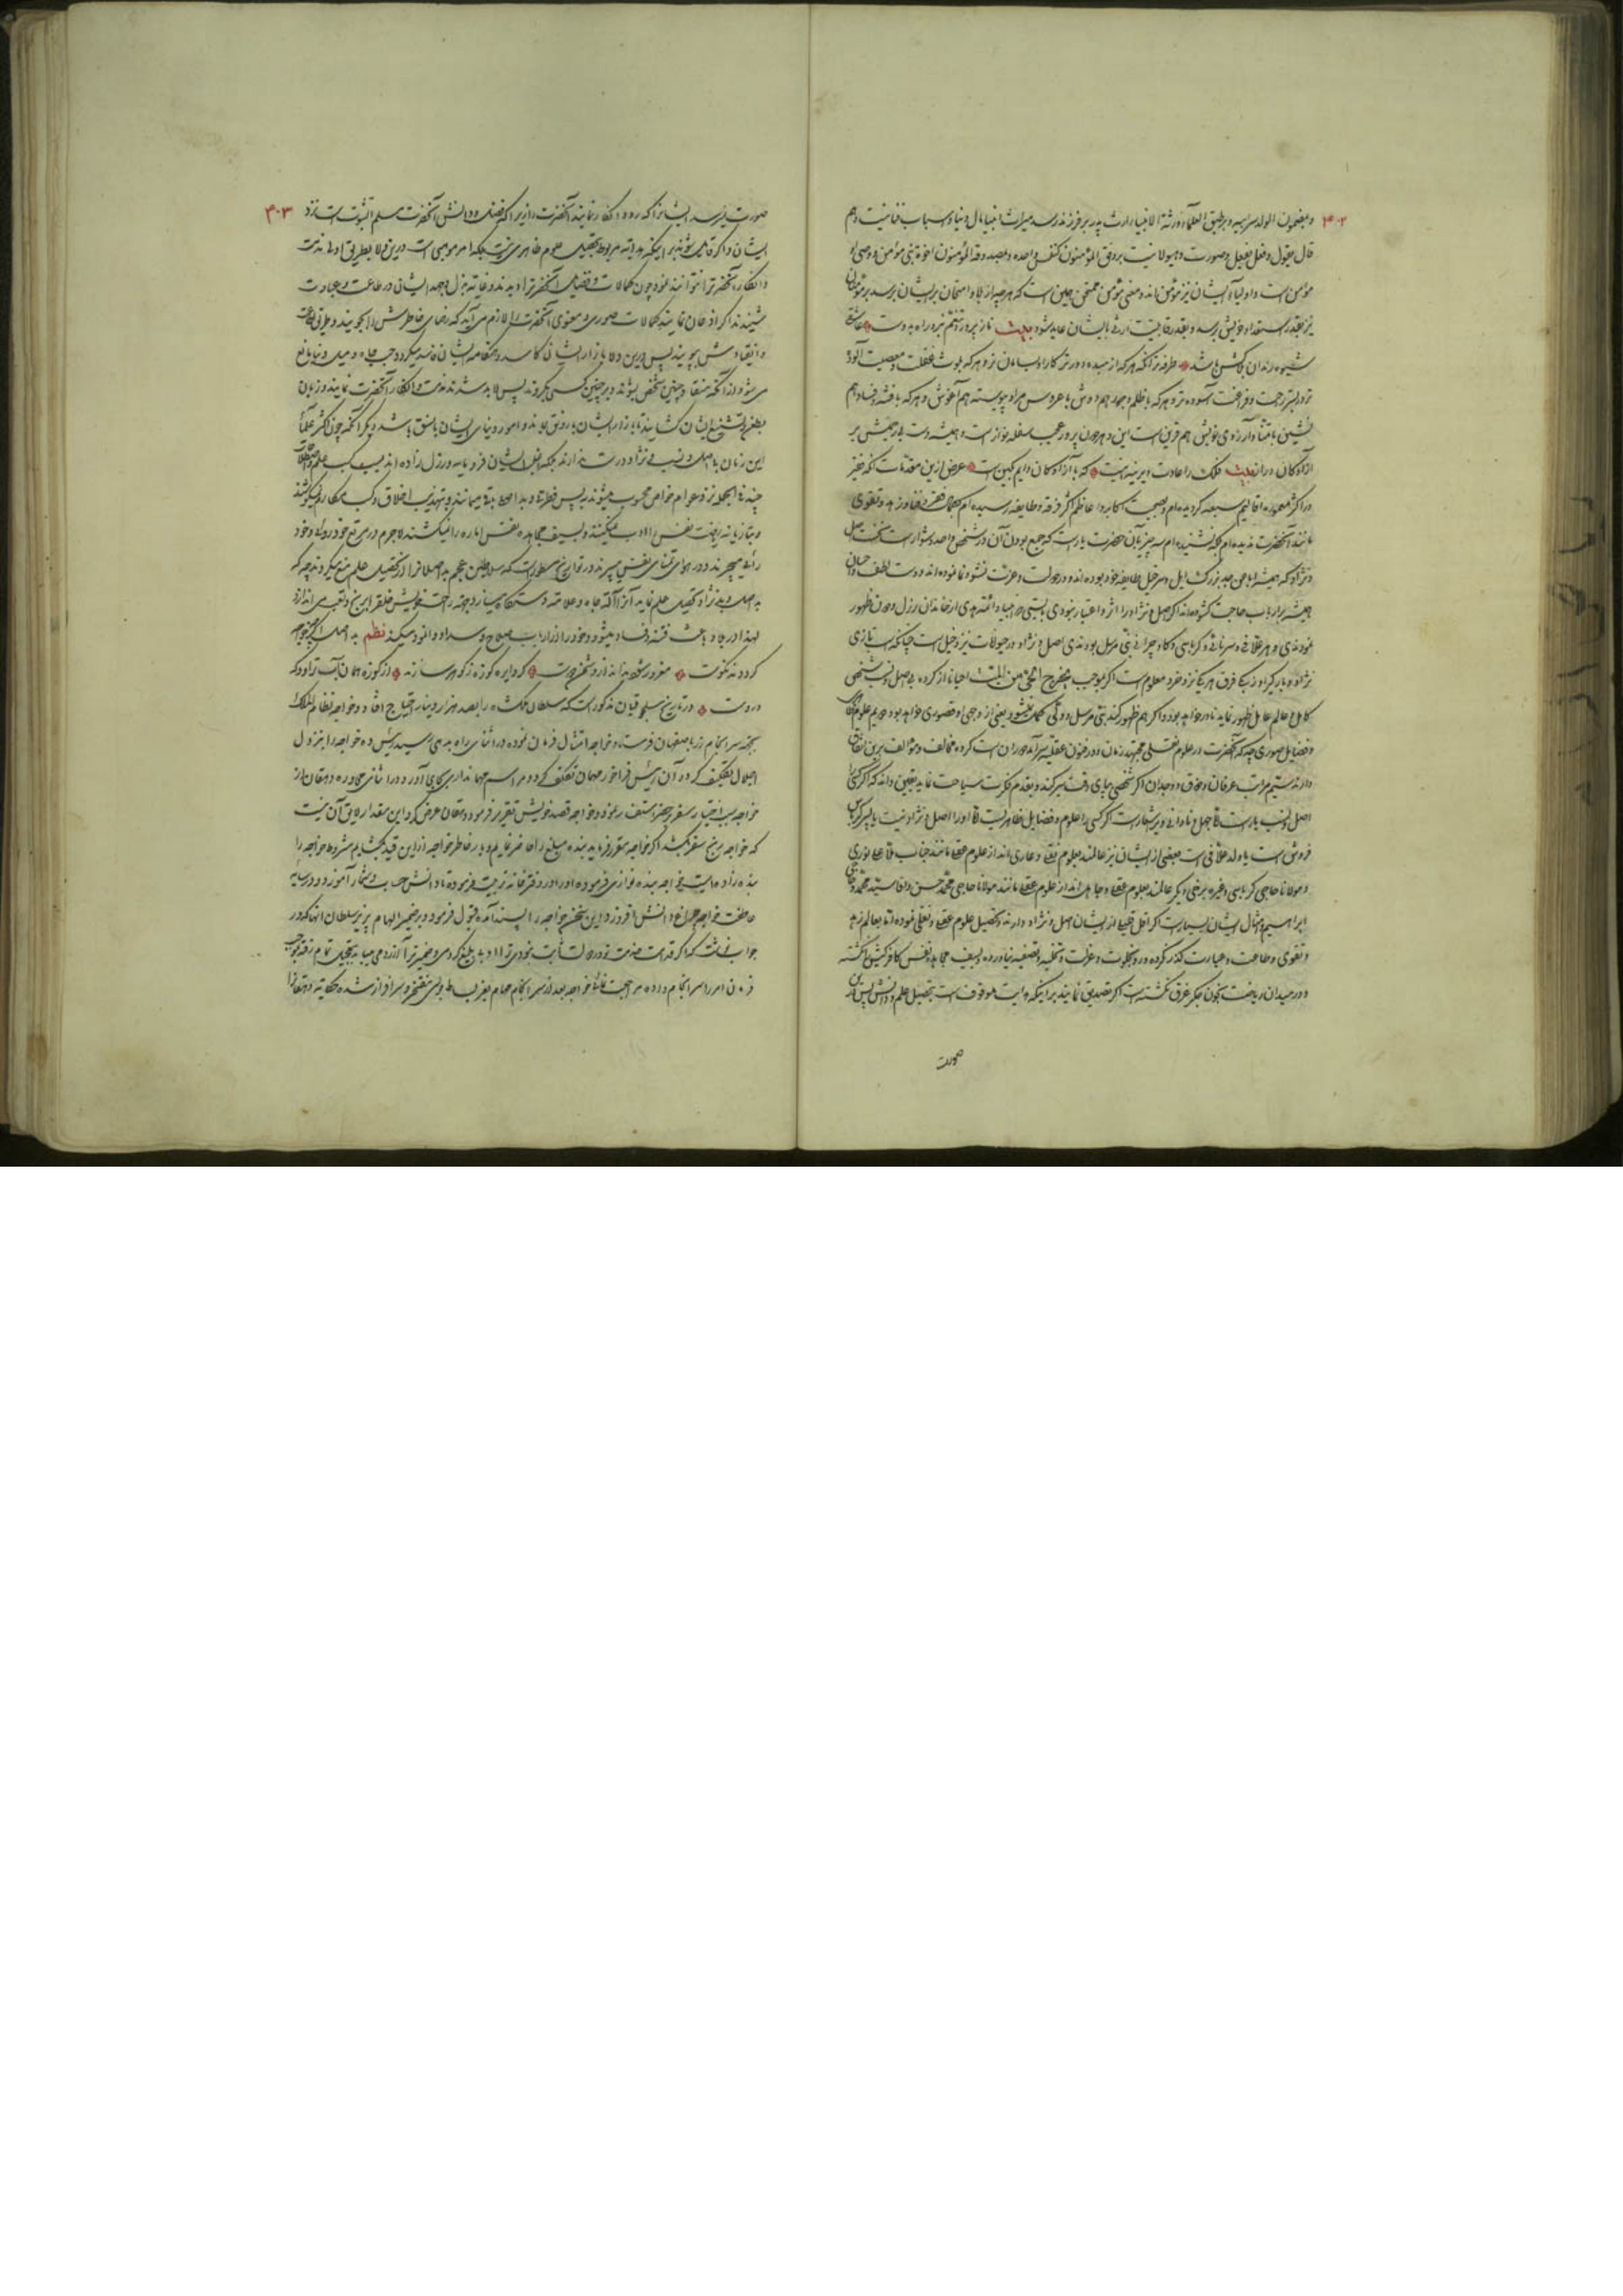 ۴۰۲
و بمضمون الولد سر ابیه و بر طبق العلماء ورثة الانبیاء ارث پدر بر فرزند رسد میراث انبیا مال دنیا و اسباب فنا نیست و هم
قال بقول و فعل بفعل و صورت و هیولا نیست بر وفق المؤمنون کنفس واحده و بصدوقه المؤمنون اخوة بنی مؤمن و وصی او
مؤمن است و اولیا ایشان نیز مؤمن‌اند و معنی مؤمن ممتحن همین است که هر چه از بلا و امتحان بر ایشان برسد بر مؤمنان
نیز بقدر استعداد خویش برسد و بقدر قابلیت ارثی بایشان عاید شود بیت ناز پرورد تنعم نبرد راه بدوست عاشقی
شیوه رندان بلاکش باشد طرفه تر آنکه هر که از مبدء دورتر کار او بسامان تر و هر که بلوث غفلت و معصیت آلوده
تر و بستر رحمت و فراغت آسوده تر و هر که با ظلم و جور هم دوش با عروس مراد پیوسته هم آغوش و هر که با فتنه و فساد هم
نشین با تمنا و آرزوی خویش هم قرین است این دهر دون پرور عجب سفله نواز است و همیشه دست ظلمش بر
آزادگان دراز بیت فلک را عادت دیرینه اینست که با آزادگان دایم بکین است غرض ازین مقدمات آنکه فقیر
در اکثر معموره اقالیم سبعه گردیده‌ام و بصحبت اکابر و اعاظم اکثر فرقه و طایفه رسیده‌ام بکمالات فقر و فنا و زهد و تقوی
مانند آنحضرت ندیده‌ام بلکه نشنیده‌ام سه چیز بآن حضرت یار است که جمع بودن آن در شخص واحد دشوار است نخست اصل
و نژاد که همیشه اباً عن جد بزرگ ایل و سر خیل طایفه خود بوده‌اند و در دولت و عزت نشو و نما نموده‌اند و دست لطف و احسان
همیشه بر ارباب حاجت گشوده‌اند اگر اصل و نژاد را اثر و اعتبار نبودی بایستی که انبیا و ائمه هدی از خاندان رذل و دون ظهور
نمودندی و هر علافی و سرتاشی و کرباسی و گاو چرانی نبی مرسل بودندی اصل و نژاد در حیوانات نیز دخیل است چنانکه اسب تازی
نژاد و بارگیر و اسب فرق هر یک نزد خرد معلوم است اگر بموجب یخرج الحی من المیت احیانا از گروه بی اصل و نسب شخصی
کامل و عالم عامل ظهور نماید نادر خواهد بود و اگر هم ظهور کند نبی مرسل و ولی کامل نمیشود یعنی از وجهی او قصوری خواهد بود دویم علوم
و فضایل صوری چه که آنحضرت در علوم نقلی مجتهد زمان و در فنون عقلیه سرآمد دوران است گروه مخالف و مؤالف برین اتفاق
دارند سیم مراتب عرفان و ذوق و وجدان اگر شخصی بپای دقت سیر کند و بقدم فکرت سیاحت نماید بیقین داند که اگر کسی را
اصل و نسب یار است اما جهل و نادانی ویرا شعار است اگر کسی را علوم و فضایل ظاهریست اما او را اصل و نژاد نیست یا پسر کرباس
فروش است یا ولد علافی است بعضی از ایشان نیز عالمند بعلوم نقلی و عاری‌اند از علوم عقلی مانند جناب ملا علی نوری
و مولانا حاجی کرباسی و غیره برخی دیگر عالمند بعلوم عقلی و جاهل‌اند از علوم نقلی مانند مولانا حاجی محمد حسن و آقا سید محمد و حاجی
ابراهیم و امثال ایشان بسیار است اگر اقل قلیلی از ایشان اصل و نژاد دارند و تحصیل علوم عقلی و نقلی نموده‌اند اما بعالم زهد
و تقوی و طاعت و عبادت گذر نکرده و رو بخلوت و عزلت و تخلیه و تصفیه نیاورده و بسیف مجاهده نفس کافر کیش نکشته
و در میدان ریاضت بخون جگر غرق نگشته است اگر تصدیق نمایند بر اینکه هدایت موقوف است بتحصیل علم و دانش پس باین
صورت
۴۰۳
صورت نمیرسد ایشانرا که رد و انکار نمایند آنحضرت را زیرا که فضل و دانش آنحضرت مسلم الثبوت است نزد
ایشان و اگر قایل شوند بر اینکه هدایت مربوط بتحصیل علوم ظاهری نیست بلکه امر موهبی است درین ولا بطریق اولی مذمت
و انکار آنحضرت را نتوانند نمود چون کمالات و فضایل آنحضرت را دیدند و غایة بذل و جهد ایشان در طاعت و عبادت
شنیدند اگر اذعان نمایند کمالات صوری و معنوی آنحضرت را لازم می‌آید که رضای خاطرش را بجویند و طریق اطاعت
و انقیادش بپویند پس درین ولا بازار ایشان کاسد و هنگامه ایشان فاسد میگردد حب جاه و میل دنیا مانع
می‌شود از آنکه منقاد چنین شخص بشوند و بر چنین کسی بگروند پس لابد شدند مذمت و انکار آنحضرت نمایند و زبان
بطعن و تشنیع ایشان گشایند تا بازار ایشان با رونق ماند و امور دنیای ایشان با نسق باشد دیگر آنکه چون اکثر علمأ
این زمان با اصل و نسب و نژاد درست ندارند بلکه اغلب ایشان فرومایه و رذل زاده‌اند بسبب کسب علم و اصطلاحات
چند فی الجمله نزد عوام خواص محسوب میشوند پس فطرتا و بد اصل باقی میمانند و بتهذیب اخلاق و کسب مکارم نمیکوشند
و بتازیانه ریاضت نفس را ادب نمیکنند و بسیف مجاهده نفس اماره را نمیکشند لاجرم در مرتع خودروئی و خود
رأیی میچرند و در هوای تمنای نفس می‌پرند در تواریخ مسطور است که سلاطین عجم بد اصلانرا از تحصیل علم منع میکردند چه که
بد اصل و بد نژاد تحصیل علم نماید آنرا آلت جاه و علامت دستگاه میسازد و بجهت راحت خویش خلق را برنج و تعب می‌اندازد
لهذا در بلاد باعث فتنه و فساد میشود و خود را از ارباب صلاح و سداد وانمود میکند نظم بد اصل گر چو خواجه
گردد نه نکوست مغرور شود نداند از دشمن دوست گر دایره کوزه ز گوهر سازند از کوزه همان برون تراود که
دروست در تاریخ سلجوقیان مذکور است که سلطان ملکشاه را بصد هزار دینار احتیاج افتاد و خواجه نظام الملک
بجهت سرانجام زر باصفهان فرستاد و خواجه امتثال فرمان نموده در اثنای راه بدهی رسید رئیس ده خواجه را بنزول
اجلال تکلیف کرد آن رئیس فراخور مهمان تکلف کرد و مراسم مهمانداری بجای آورد و در اثنای محاوره دهقان از
خواجه سبب اختیار سفر و حضر استفسار نمود و خواجه قصه خویش تقریر فرمود دهقان عرض کرد این مقدار لایق آن نیست
که خواجه رنج سفر بکشد اگر خواجه مقرر فرماید بنده مبلغ را حاضر نمایم و بار خاطر خواجه را ازین قید بگشایم مشروط خواجه را
بنده زاده ایست خواجه بنده نوازی فرموده او را در دفترخانه تربیت فرموده تا دانش حساب و شمار آموزد و در سایه
عاطفت خواجه چراغ دانش افروزد این سخن خواجه را پسند آمده قبول فرمود و بر ضمیر الهام پذیر سلطان انها کرد در
جواب نوشت که اگر قدمت خدمت تو در دولت ثابت نبودی ترا ادب بلیغ کردمی و ضمیر ترا آزردمی میباید بتعجیل تمام زر بموجب
فرمان امر را سرانجام داده مراجعت نمائی خواجه بعد از سرانجام مهام بعز بساط بوسی مفتخر و سرافراز شده حکایت دهقانرا